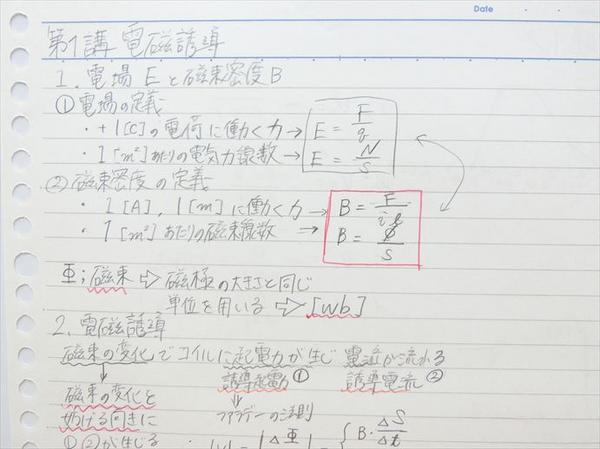 Date
第1講 電磁誘導
1. 電場 E と磁束密度 B
① 電場の定義
・+1[C]の電荷に働く力→ E = F/q
・1[m²]あたりの電気力線数→ E = N/S
② 磁束密度の定義
・1[A], 1[m]に働く力→ B = F/iℓ
・1[m²]あたりの磁束線数 → B = Φ/S
Φ; 磁束 ⇨ 磁極の大きさと同じ
単位を用いる ⇨ [wb]
2. 電磁誘導
磁束の変化でコイルに起電力が生じ 電流が流れる
誘導起電力① 誘導電流②
磁束の変化を
妨げる向きに ファラデーの法則
①②が生じる |V| = |ΔΦ { B・ΔS/Δt